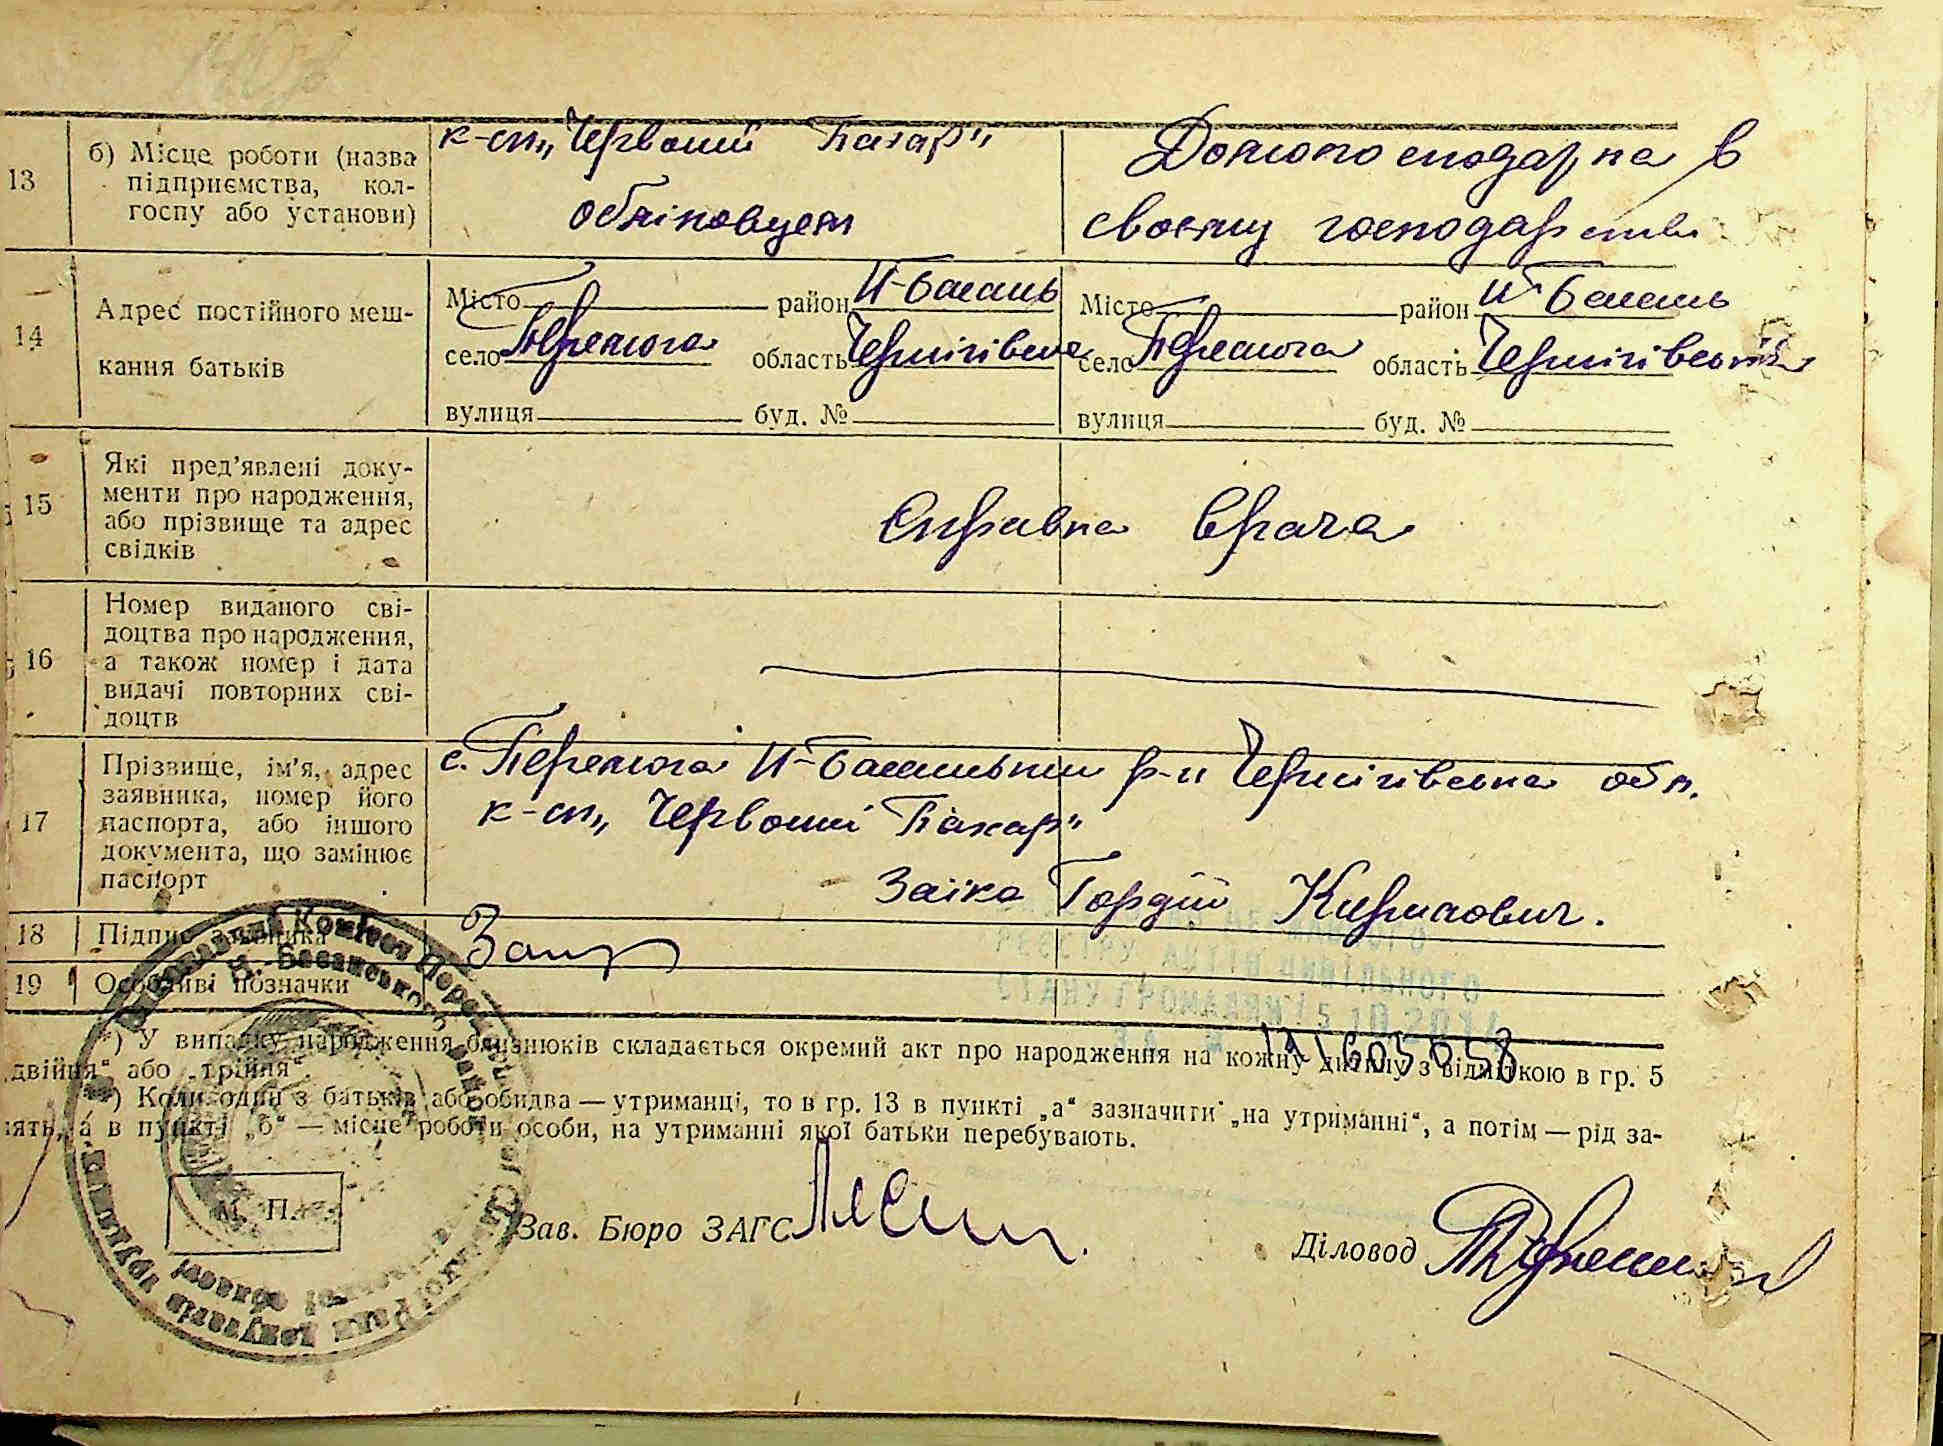 13
б) Місце роботи (назва
підприємства, кол-
госпу або установи)
к-сп „Червоний Пахар"
обліковцем
Домогосподарка в
своєму господарстві
14
Адрес постійного меш-
кання батьків
Місто район Н-Басань
село Перемога область Чернігівська
вулиця буд. №
Місто район Н-Басань
село Перемога область Чернігівська
вулиця буд. №
15
Які пред'явлені доку-
менти про народження,
або прізвище та адрес
свідків
Справка врача
16
Номер виданого сві-
доцтва про народження,
а також номер і дата
видачі повторних сві-
доцтв
17
Прізвище, ім'я, адрес
заявника, номер його
паспорта, або іншого
документа, що замінює
паспорт
с. Перемога Н-Басанський р-н Чернігівська обл.
к-сп „Червоний Пахар"
Заїка Гордій Кирилович.
18
Підпис заявника
19
Особливі позначки
РЕЄСТРУ АКТІВ ЦИВІЛЬНОГО
СТАНУ ГРОМАДЯН
*) У випадку народження близнюків складається окремий акт про народження на кожну дитину з відміткою в гр. 5
„двійня" або „трійня".
*) Коли один з батьків або обидва — утриманці, то в гр. 13 в пункті „а" зазначити „на утриманні", а потім — рід за-
нять, а в пункті „б" — місце роботи особи, на утриманні якої батьки перебувають.
М. П.
Зав. Бюро ЗАГС
Діловод